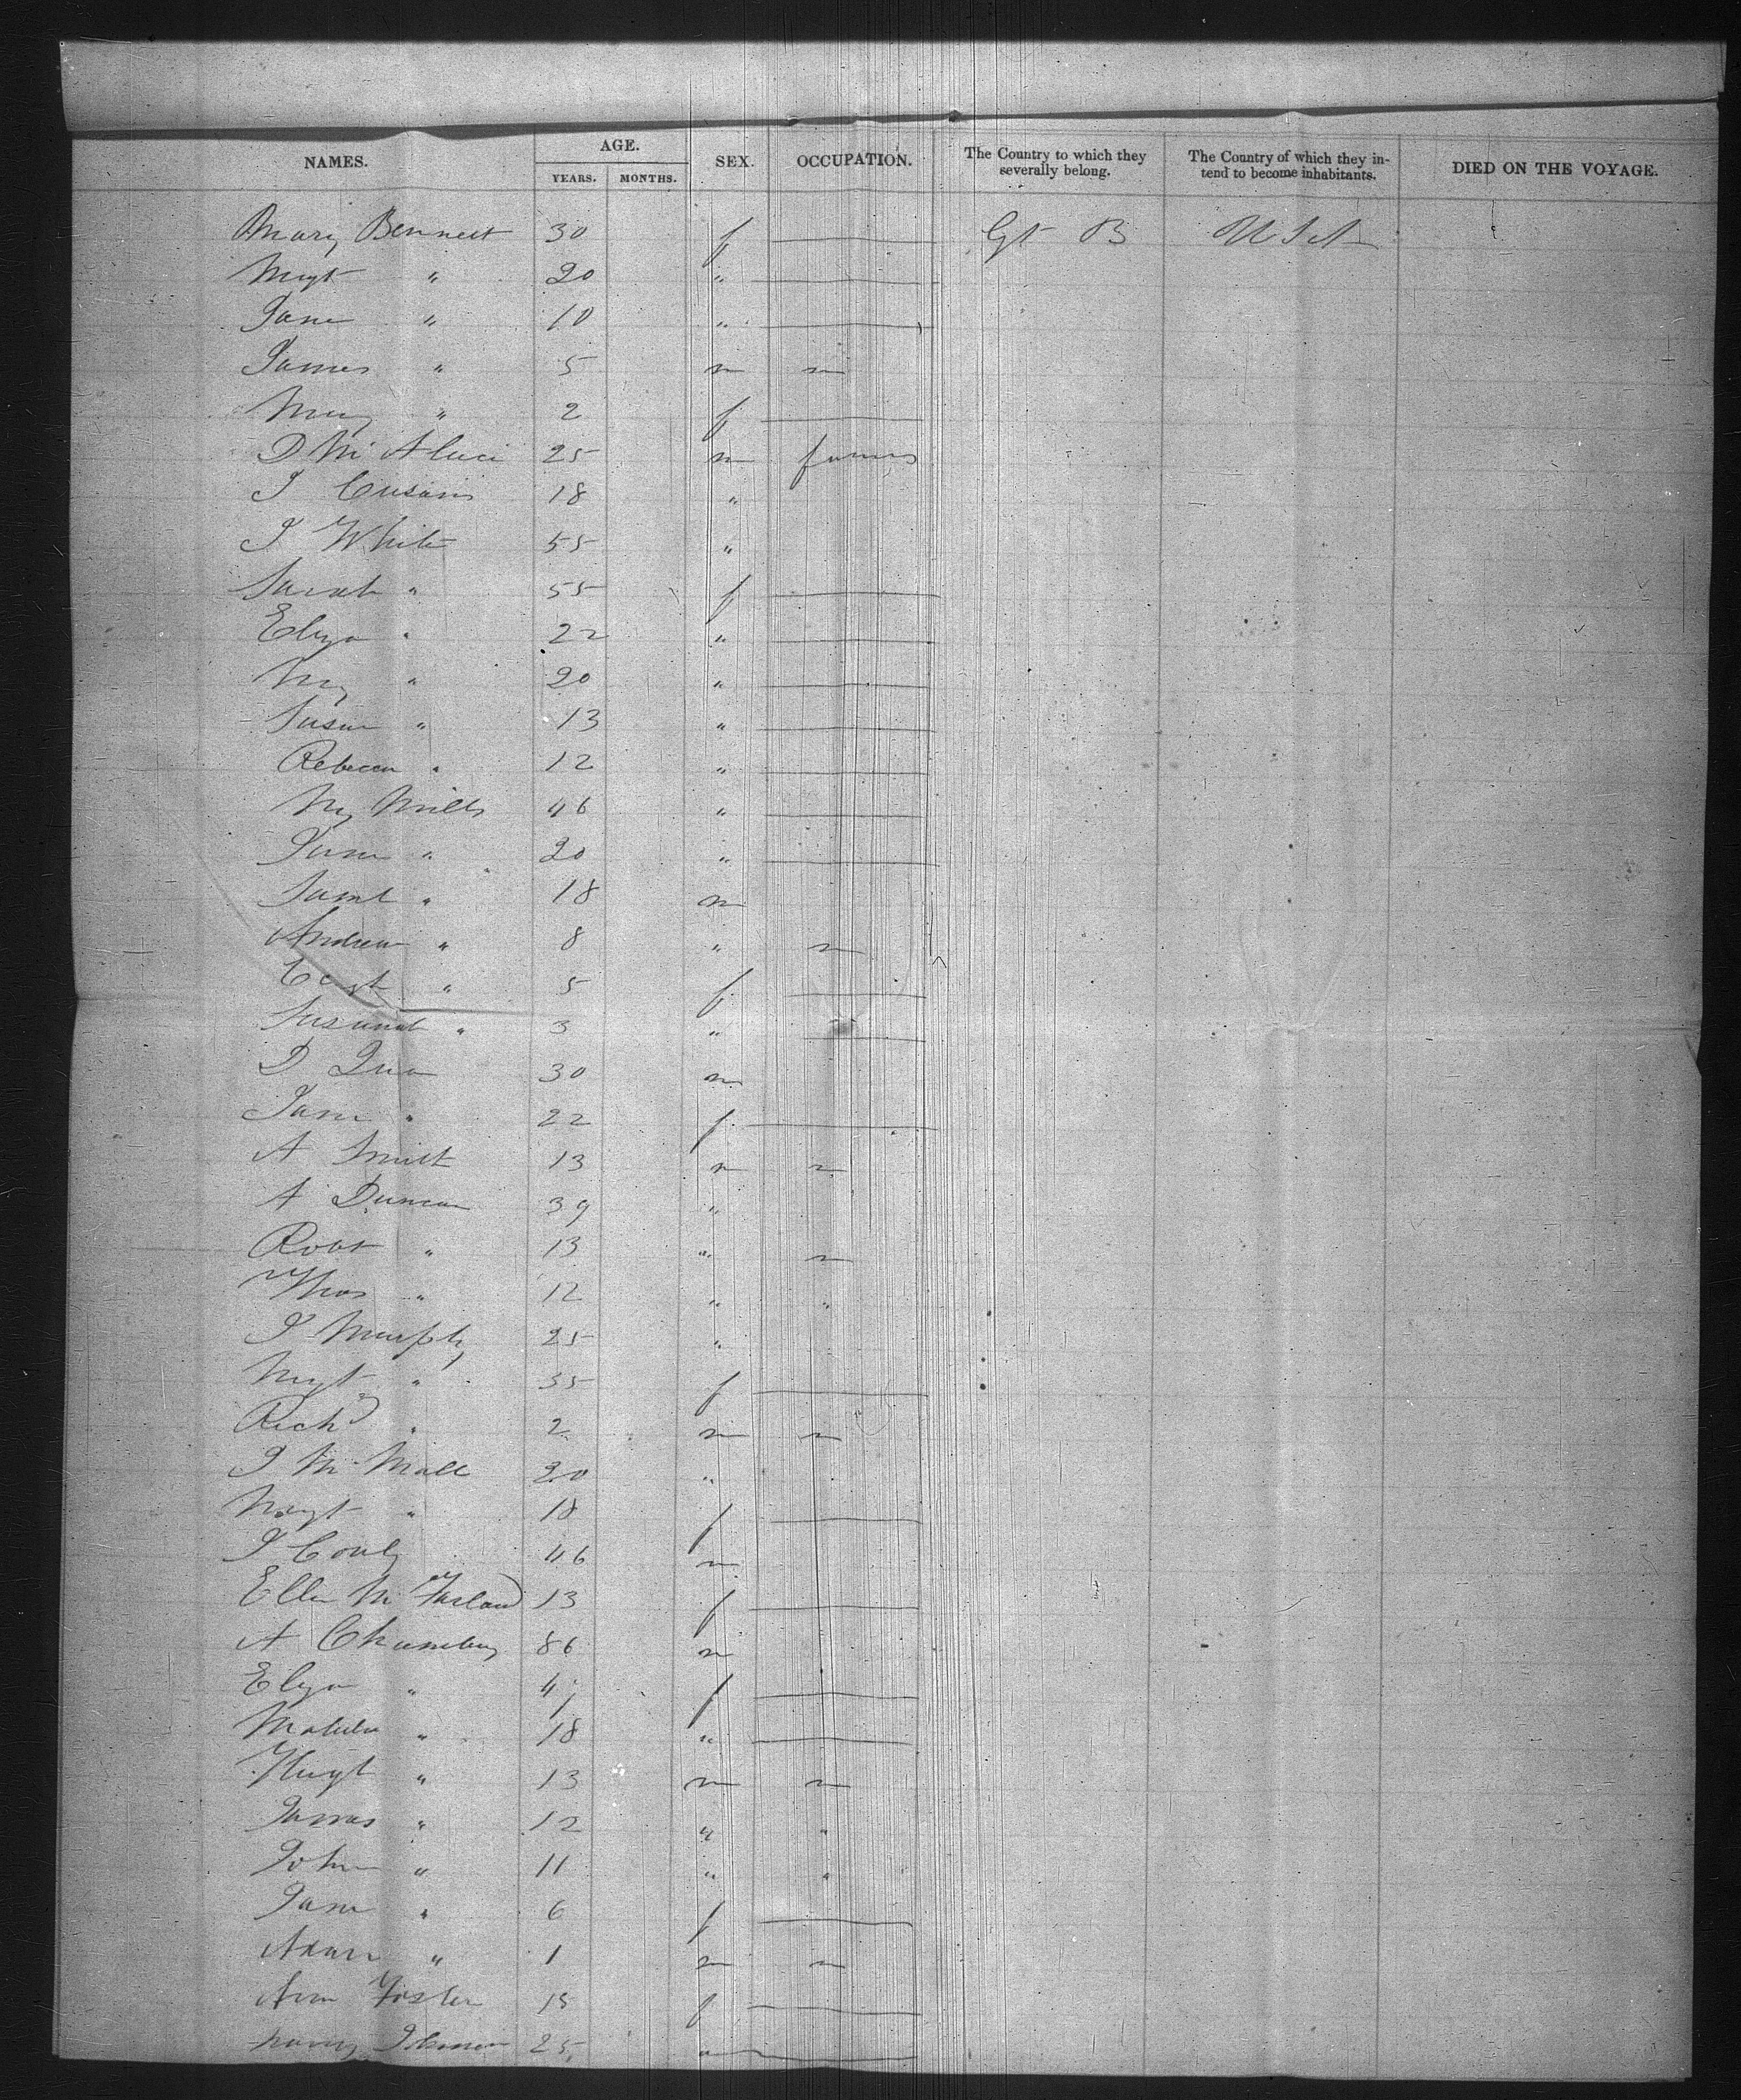 NAMES. AGE. SEX. OCCUPATION. The Country to which they severally belong. The Country of which they intend to become inhabitants. DIED ON THE VOYAGE.
YEARS. MONTHS.
Mary Bennett 30 f — Gt B U S A
Mgt " 20 " —
Jane " 10 " —
James " 5 m
Mary " 2 f —
D Mc 25 m farmer
J 18 "
J White 55 "
Sarah " 55 f —
Eliza " 22 " —
My " 20 " —
Susan " 13 " —
Rebecca " 12 " —
My Mills 46 " —
Jane " 20 " —
Saml " 18 m
Andrew " 8 "
" 5 f —
Susanah " 3 " —
D 30 m
Jane " 22 f —
A Smith 13 m
A Duncan 39 "
Robt " 13 "
Thos " 12 " "
J Murphy 25 "
Mgt " 35 f —
Richd " 2 m
J Mc 20 "
Mgt " 18 f —
J 46 m
Ellen Mc Farland 13 f —
A 86 m
Eliza " f —
Matilda " 18 " —
" 13 m
James " 12 " "
John " 11 " "
Jane " 6 f —
Adam " 1 m
Ann Foster 15 f —
Nancy Johnson 25 " —